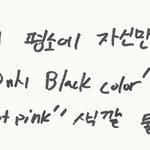 평소에 자신만
Black color"
pink" 색깔